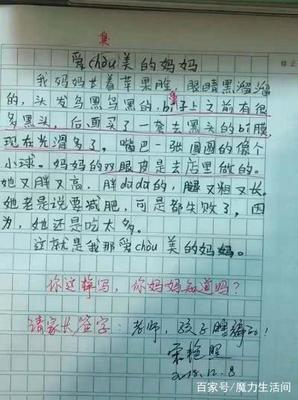 臭
爱chòu美的妈妈
我妈妈长着苹果脸,眼睛黑溜溜
的,头发乌黑乌黑的,bí子上之前有很
多黑头,后面买了一套去黑头的bí膜
现在光滑多了。嘴巴一张圆圆的像个
小球。妈妈的双眼皮是去店里做的。
她又胖又高,胖dūdū的,腿又粗又长。
她老是说要减肥,可是都失败了。因
为,她还是吃太多。
这就是我那爱chòu美的妈妈。
你这样写,你妈妈知道吗?
请家长签字:老师,孩子瞎编的!
2018.12.8
百家号/魔力生活间